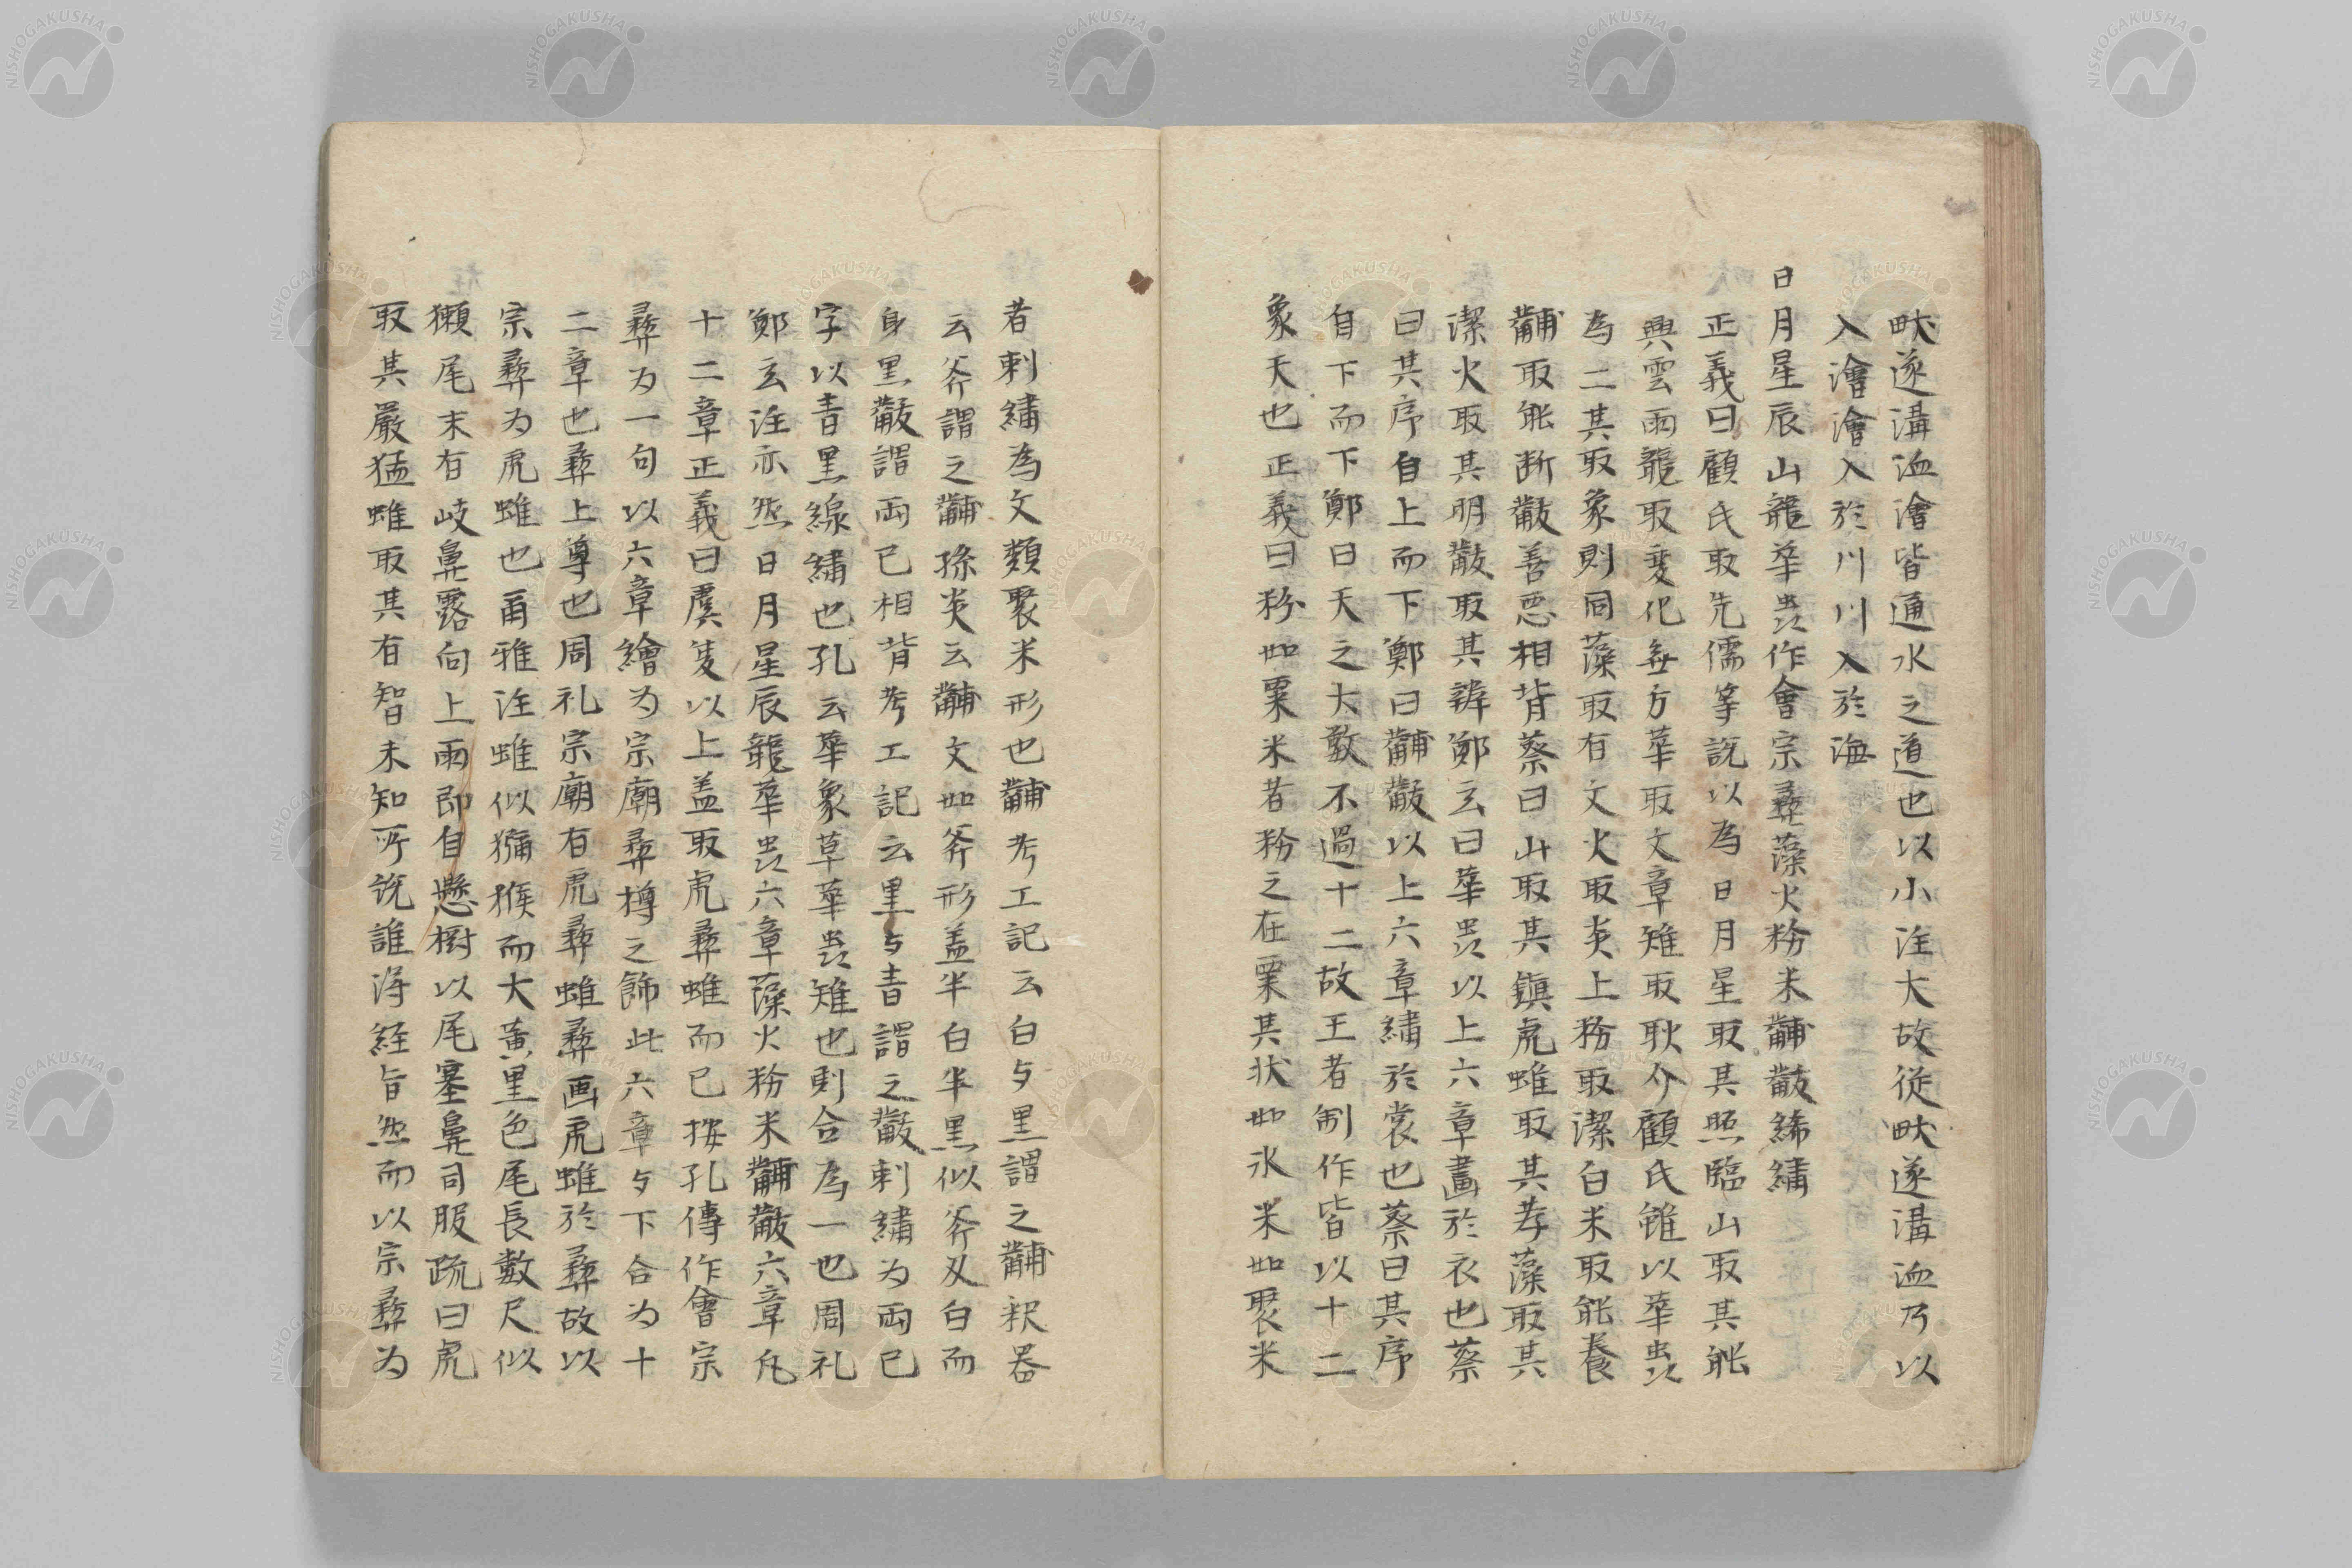 畎遂溝洫澮皆通水之道也以小注大故從畎遂溝洫乃以
入澮澮入於川川入於海
日月星辰山龍華虫作會宗彝藻火粉米黼黻絺繡
正義曰顧氏取先儒等説以為日月星取其照臨山取其能
興雲雨龍取変化無方華取文章雉取耿介顧氏雖以華虫
為二其取象則同藻取有文火取炎上粉取潔白米取能養
黼取能断黻善悪相背蔡曰山取其鎮虎蜼取其孝藻取其
潔火取其明黻取其辨鄭玄曰華虫以上六章畫於衣也蔡
曰其序自上而下鄭曰黼黻以上六章繡於裳也蔡曰其序
自下而下鄭曰天之大数不過十二故王者制作皆以十二
象天也正義曰粉如粟米者粉之在粟其状如氷米如聚米
者刺繡為文類聚米形也黼考工記云白与黒謂之黼釈器
云斧謂之黼孫炎云黼文如斧形盖半白半黒似斧刃白而
身黒黻謂両已相背考工記云黒与青謂之黻刺繡为両已
字以青黒線繡也孔云華象草華虫雉也則合為一也周礼
鄭玄注亦然日月星辰龍華虫六章藻火粉米黼黻六章凡
十二章正義曰虞夏以上盖取虎彝蜼而已按孔傳作會宗
彝为一句以六章繪为宗廟彝樽之飾此六章与下合为十
二章也彝上尊也周礼宗廟有虎彝蜼彝画虎蜼於彝故以
宗彝为虎蜼也爾雅注蜼似獼猴而大黄黒色尾長數尺似
獺尾末有岐鼻露向上雨即自懸樹以尾塞鼻司服疏曰虎
取其嚴猛蜼取其有智未知所説誰得経旨然而以宗彝为